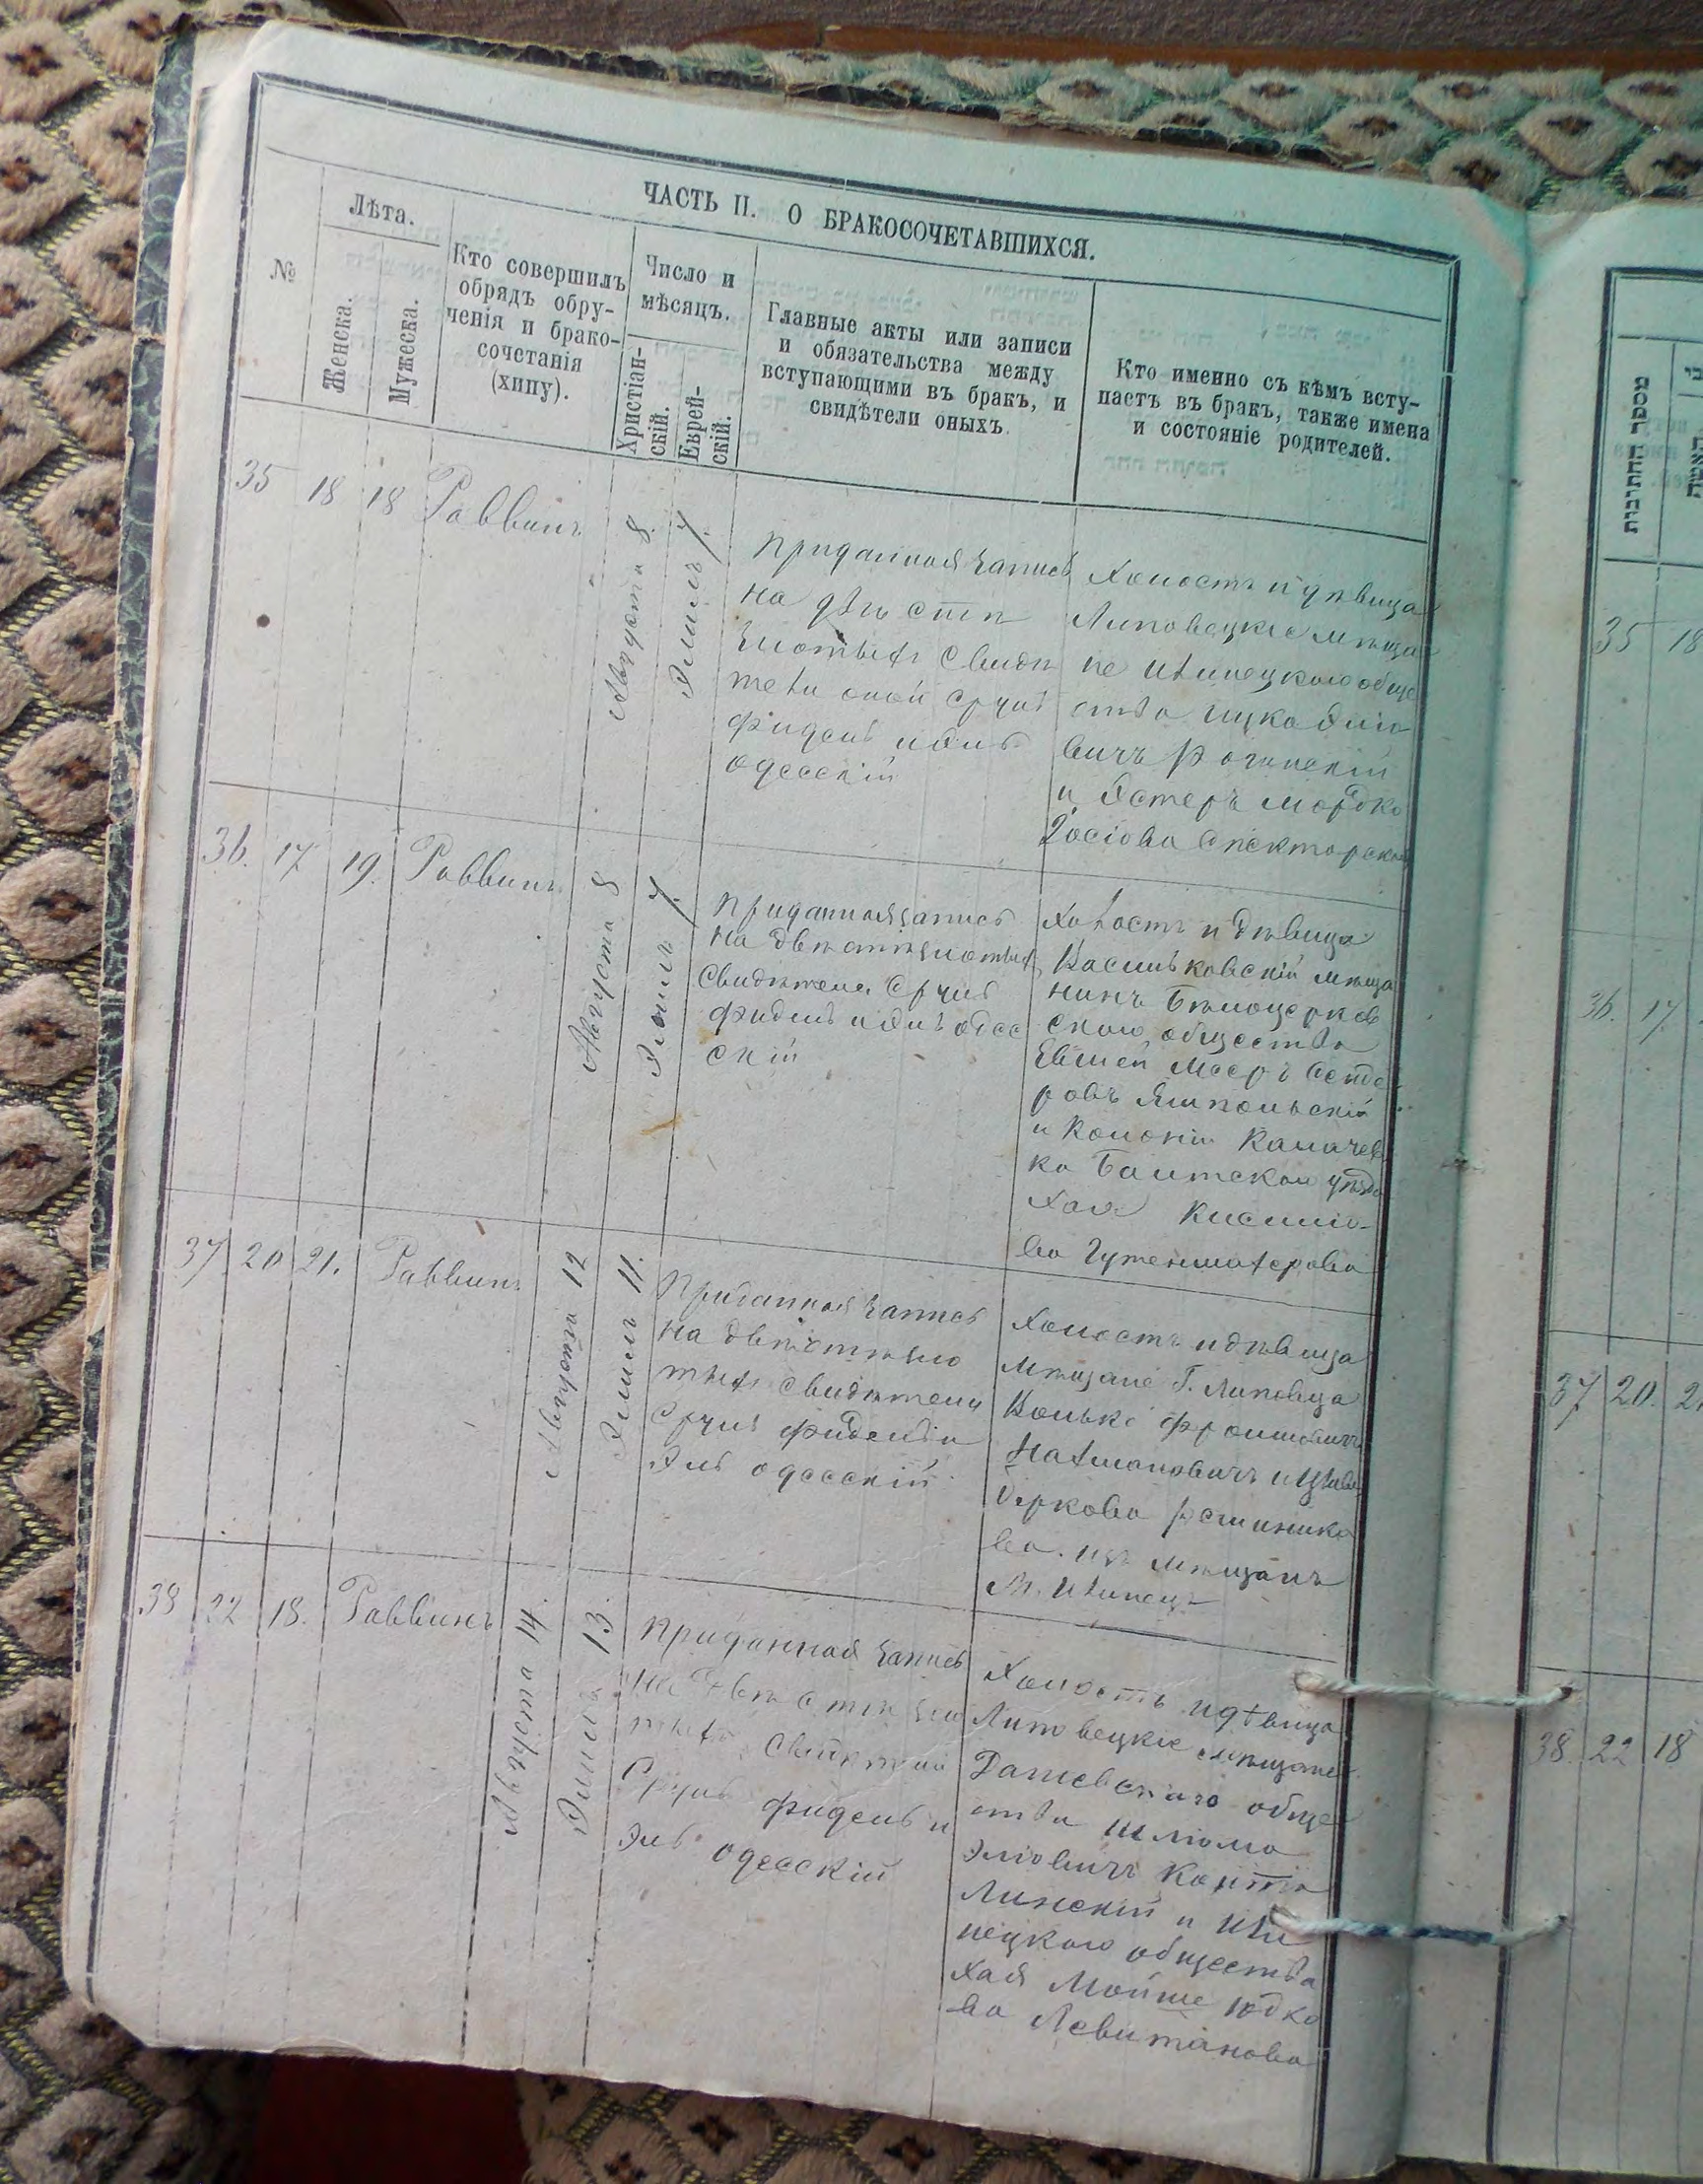 ЧАСТЬ II. О БРАКОСОЧЕТАВШИХСЯ.
№
Лѣта.
Женска.
Мужеска.
Кто совершилъ
обрядъ обру-
ченія и брако-
сочетанія
(хипу).
Число и
мѣсяцъ.
Христіан-
скій.
Еврей-
скій.
Главные акты или записи
и обязательства между
вступающими въ бракъ, и
свидѣтели оныхъ.
Кто именно съ кѣмъ всту-
паетъ въ бракъ, также имена
и состояніе родителей.
35 18 18 Раввинъ
Августа 8.
Элилъ 7.
приданная запись
на двѣ стѣ
злотыхъ свидѣ
тели оной Сруль
фидель и Эль
одесскій
Холостъ и дѣвица
Липовецкіе мѣща
не Ильинецкого обще
ства Ицко Элио
вичъ
и Эстеръ Мордко
Іосіова Спекторская
36. 17 19. Раввинъ
Августа 8
Элилъ 7.
приданная запись
на двѣ стѣ злотыхъ
свидѣтели Сруль
фидель и Эль одес
скій
Холостъ и дѣвица
Васильковскій мѣща
нинъ Бѣлоцерков
ского общества
Евшей Мееръ
ровъ Ямпольскій
и Колоніи
ка Балтскои уѣзда
Хая Кисилио-
ва
37 20 21. Раввинъ
Августа 12
Элилъ 11.
Приданная запись
на двѣ стѣ зло
тыхъ свидѣтели
Сруль фидель и
Эль одесскій
Холостъ и дѣвица
мѣщане Г. Липовца
Волько Фроимовичъ
Нахмановичъ и
Беркова
ва. изъ мѣщанъ
М. Ильинецъ
38 22 18. Раввинъ
Августа 14.
Элилъ 13.
приданная запись
на двѣ стѣ зло
тыхъ свидѣтели
Сруль фидель и
Эль одесскій
Холостъ и дѣвица
Липовецкіе мѣщане
Дашевского обще
ства Шлёма
Эліовичъ
и Ильи
нецкого общества
Хая Мойше Юдко
ва Левитанова
מספר החתונות
האשה
35 18
36. 17.
37 20. 21
38. 22 18